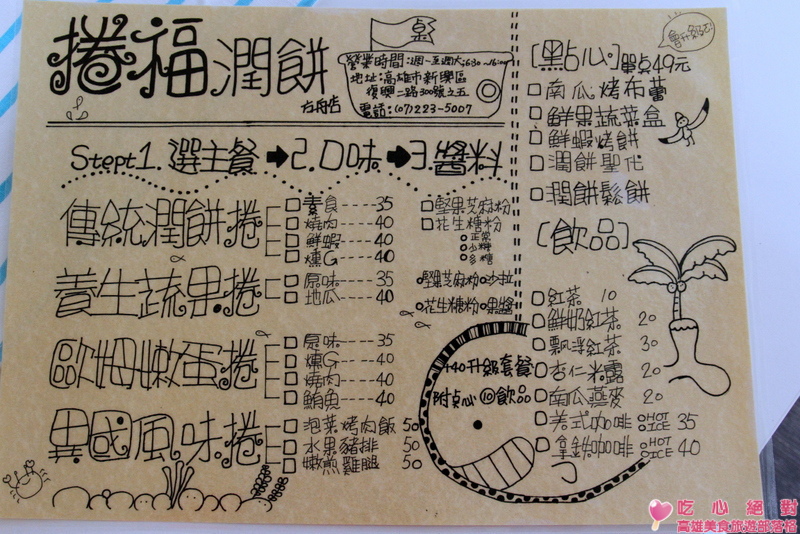 捲福潤餅
方舟店
營業時間:週一至週六6:30~16:00
地址:高雄市新興區
復興二路300號之五
電話:(07)223-5007
Stept1.選主餐➡2.口味➡3.醬料
傳統潤餅捲
□素食----35
□燒肉----40
□鮮蝦----40
□燻G----40
□堅果芝麻粉
□花生糖粉
○正常
○少糖
○多糖
養生蔬果捲
□原味----35
□地瓜----40
堅果芝麻粉 沙拉
花生糖粉 果醬
歐姆嫩蛋捲
□原味---35
□燻G---40
□燒肉---40
□鮪魚---40
異國風味捲
□泡菜烤肉飯 50
□水果豬排 50
□嫩煎雞腿 50
+40升級套餐
附點心⑩飲品
[點心]單點49元
□南瓜烤布蕾
□鮮果蔬菜盒
□鮮蝦烤餅
□潤餅聖代
□潤餅鬆餅
[飲品]
□紅茶 10
□鮮奶紅茶 20
□飄浮紅茶 30
□杏仁米露 20
□南瓜燕麥 20
□美式咖啡 ○HOT ○ICE 35
□拿鉄咖啡 ○HOT ○ICE 40
吃心絕對
高雄美食旅遊部落格